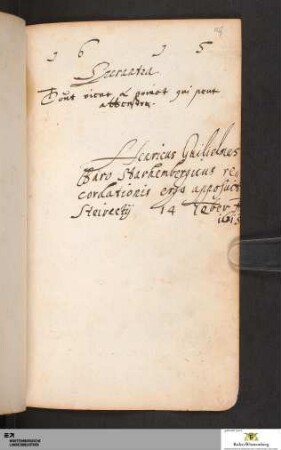 1 6 1 5
Tout vient a point qui peut
attendre.
Henricus Guilielmus
Baro Starhembergicus re,
cordationis ergo apposuit
14
1615
WÜRTTEMBERGISCHE
LANDESBIBLIOTHEK
Baden-Württemberg